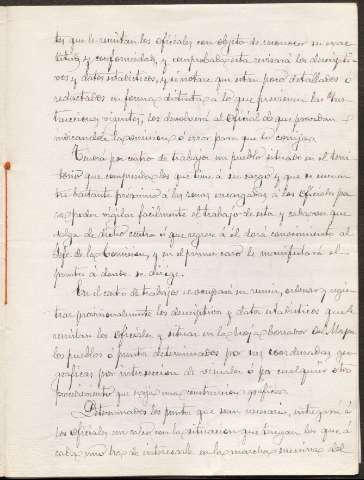 tos que le remitan los oficiales con objeto de reconocer su exac-
titud y conformidad, y comprobada esta revisará los descripti-
vos y datos estadisticos, y si notare que estan poco detallados ó
redactados en forma distinta, á lo que previenen las Ins-
trucciones vigentes, los devolverá al oficial de que procedan
marcandole la omision ó error para que lo corrija.
Tendrá por centro de trabajos un pueblo situado en el terri-
torio que comprendan los que tiene á su cargo y que se encuen-
tre bastante proximo á las zonas encargadas á los oficiales pa-
ra poder vigilar facilmente el trabajo de esta, y cada vez que
salga de dicho centro ó que regrese á él dará conocimiento al
Jefe de la Comision, y en el primer caso le manifestará el
punto á donde se dirige.
En el centro de trabajos se ocupará en reunir, ordenar y regis-
trar provisionalmente los descriptivos y datos estadisticos que le
remitan los oficiales y situar en la hoja borrador del Mapa
los pueblos ó puntos determinados por sus coordenadas geo-
graficas por interseccion de visuales ó por cualquier otro
procedimiento que exija una construccion grafica.
Determinados los puntos que sean necesarios, entregará á
los oficiales un calco con la situacion que tengan los que á
cada uno ha de interesarle en la marcha sucesiva del